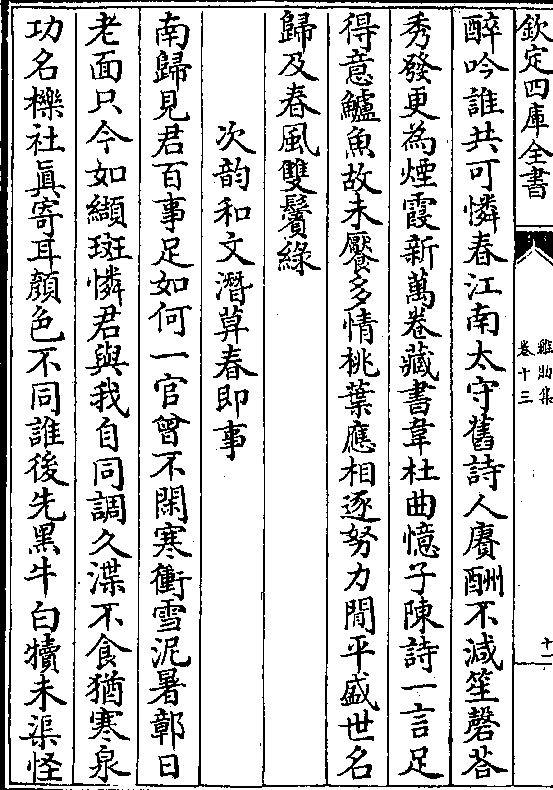 欽定四庫全書
雞肋集
卷十三
十一
醉吟誰共可憐春江南太守舊詩人賡酬不減笙磬荅
秀發更為煙霞新萬卷藏書韋杜曲憶子陳詩一言足
得意鱸魚故未饜多情桃葉應相逐努力閒平盛世名
歸及春風雙鬢綠
次韵和文潛草春即事
南歸見君百事足如何一官曾不閑寒衝雪泥暑鄣日
老面只今如纈斑憐君與我自同調久渫不食猶寒泉
功名櫟社真寄耳顏色不同誰後先黑牛白犢未渠怪